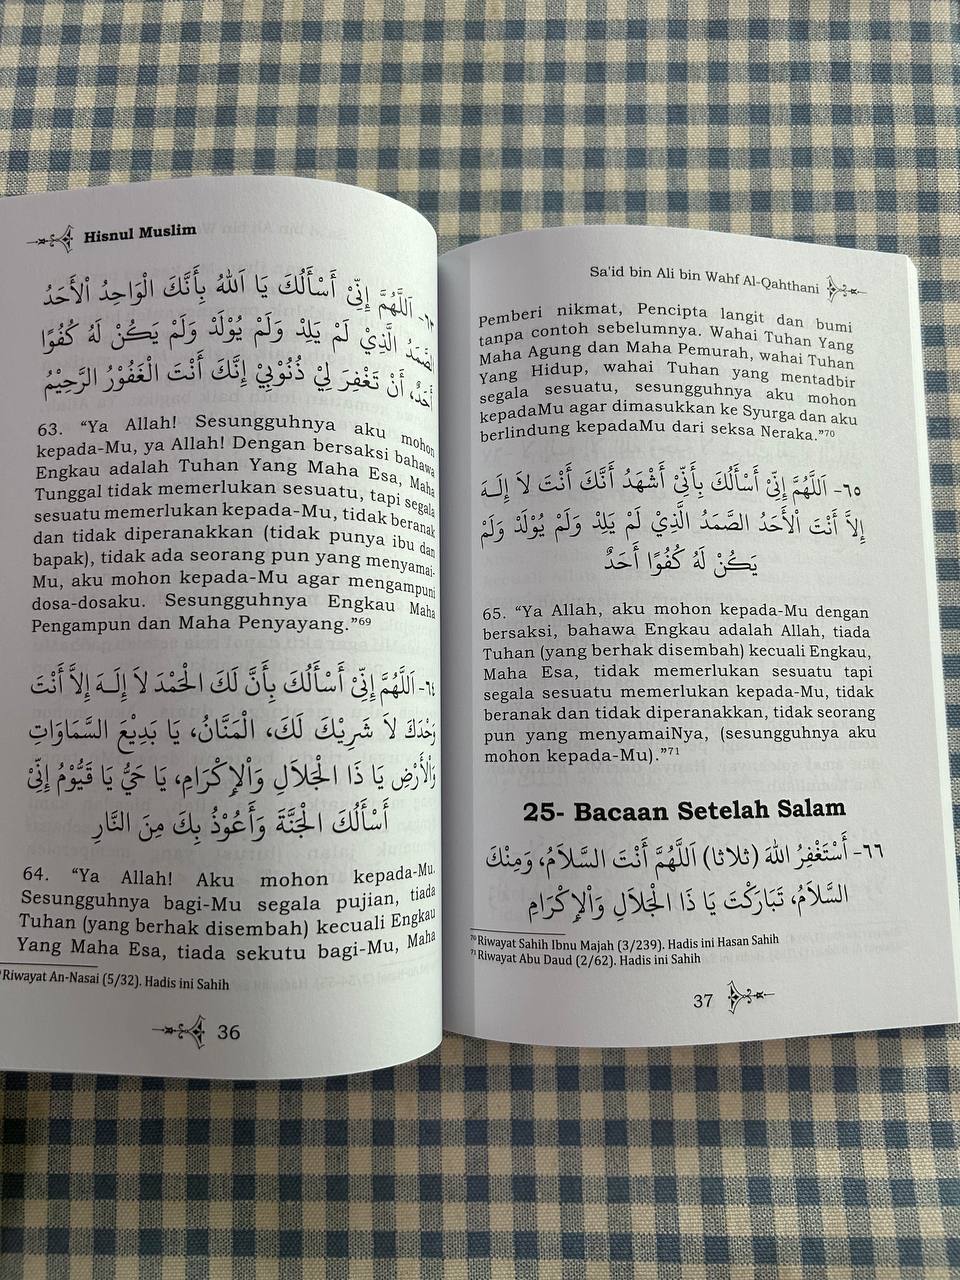 Hisnul Muslim
٦٣- اَللَّهُمَّ إِنِّيْ أَسْأَلُكَ يَا اَللهُ بِأَنَّكَ الْوَاحِدُ الْأَحَدُ
الصَّمَدُ الَّذِيْ لَمْ يَلِدْ وَلَمْ يُوْلَدْ وَلَمْ يَكُنْ لَهُ كُفُوًا
أَحَدٌ، أَنْ تَغْفِرَ لِيْ ذُنُوْبِيْ إِنَّكَ أَنْتَ الْغَفُوْرُ الرَّحِيْمُ
63. “Ya Allah! Sesungguhnya aku mohon
kepada-Mu, ya Allah! Dengan bersaksi bahawa
Engkau adalah Tuhan Yang Maha Esa, Maha
Tunggal tidak memerlukan sesuatu, tapi segala
sesuatu memerlukan kepada-Mu, tidak beranak
dan tidak diperanakkan (tidak punya ibu dan
bapak), tidak ada seorang pun yang menyamai-
Mu, aku mohon kepada-Mu agar mengampuni
dosa-dosaku. Sesungguhnya Engkau Maha
Pengampun dan Maha Penyayang.”69
٦٤- اَللَّهُمَّ إِنِّيْ أَسْأَلُكَ بِأَنَّ لَكَ الْحَمْدَ لاَ إِلَـهَ إِلاَّ أَنْتَ
وَحْدَكَ لاَ شَرِيْكَ لَكَ، الْمَنَّانُ، يَا بَدِيْعَ السَّمَاوَاتِ
وَالْأَرْضِ يَا ذَا الْجَلاَلِ وَالْإِكْرَامِ، يَا حَيُّ يَا قَيُّوْمُ إِنِّيْ
أَسْأَلُكَ الْجَنَّةَ وَأَعُوْذُ بِكَ مِنَ النَّارِ
64. “Ya Allah! Aku mohon kepada-Mu.
Sesungguhnya bagi-Mu segala pujian, tiada
Tuhan (yang berhak disembah) kecuali Engkau
Yang Maha Esa, tiada sekutu bagi-Mu, Maha
Riwayat An-Nasai (5/32). Hadis ini Sahih
36
Sa'id bin Ali bin Wahf Al-Qahthani
Pemberi nikmat, Pencipta langit dan bumi
tanpa contoh sebelumnya. Wahai Tuhan Yang
Maha Agung dan Maha Pemurah, wahai Tuhan
Yang Hidup, wahai Tuhan yang mentadbir
segala sesuatu, sesungguhnya aku mohon
kepadaMu agar dimasukkan ke Syurga dan aku
berlindung kepadaMu dari seksa Neraka.”70
٦٥- اَللَّهُمَّ إِنِّيْ أَسْأَلُكَ بِأَنِّيْ أَشْهَدُ أَنَّكَ أَنْتَ لاَ إِلَـهَ
إِلاَّ أَنْتَ الْأَحَدُ الصَّمَدُ الَّذِيْ لَمْ يَلِدْ وَلَمْ يُوْلَدْ وَلَمْ
يَكُنْ لَهُ كُفُوًا أَحَدٌ
65. “Ya Allah, aku mohon kepada-Mu dengan
bersaksi, bahawa Engkau adalah Allah, tiada
Tuhan (yang berhak disembah) kecuali Engkau,
Maha Esa, tidak memerlukan sesuatu tapi
segala sesuatu memerlukan kepada-Mu, tidak
beranak dan tidak diperanakkan, tidak seorang
pun yang menyamaiNya, (sesungguhnya aku
mohon kepada-Mu).”71
25- Bacaan Setelah Salam
٦٦- أَسْتَغْفِرُ اللهَ (ثلاثا) اَللَّهُمَّ أَنْتَ السَّلاَمُ، وَمِنْكَ
السَّلاَمُ، تَبَارَكْتَ يَا ذَا الْجَلاَلِ وَالْإِكْرَامِ
70 Riwayat Sahih Ibnu Majah (3/239). Hadis ini Hasan Sahih
71 Riwayat Abu Daud (2/62). Hadis ini Sahih
37